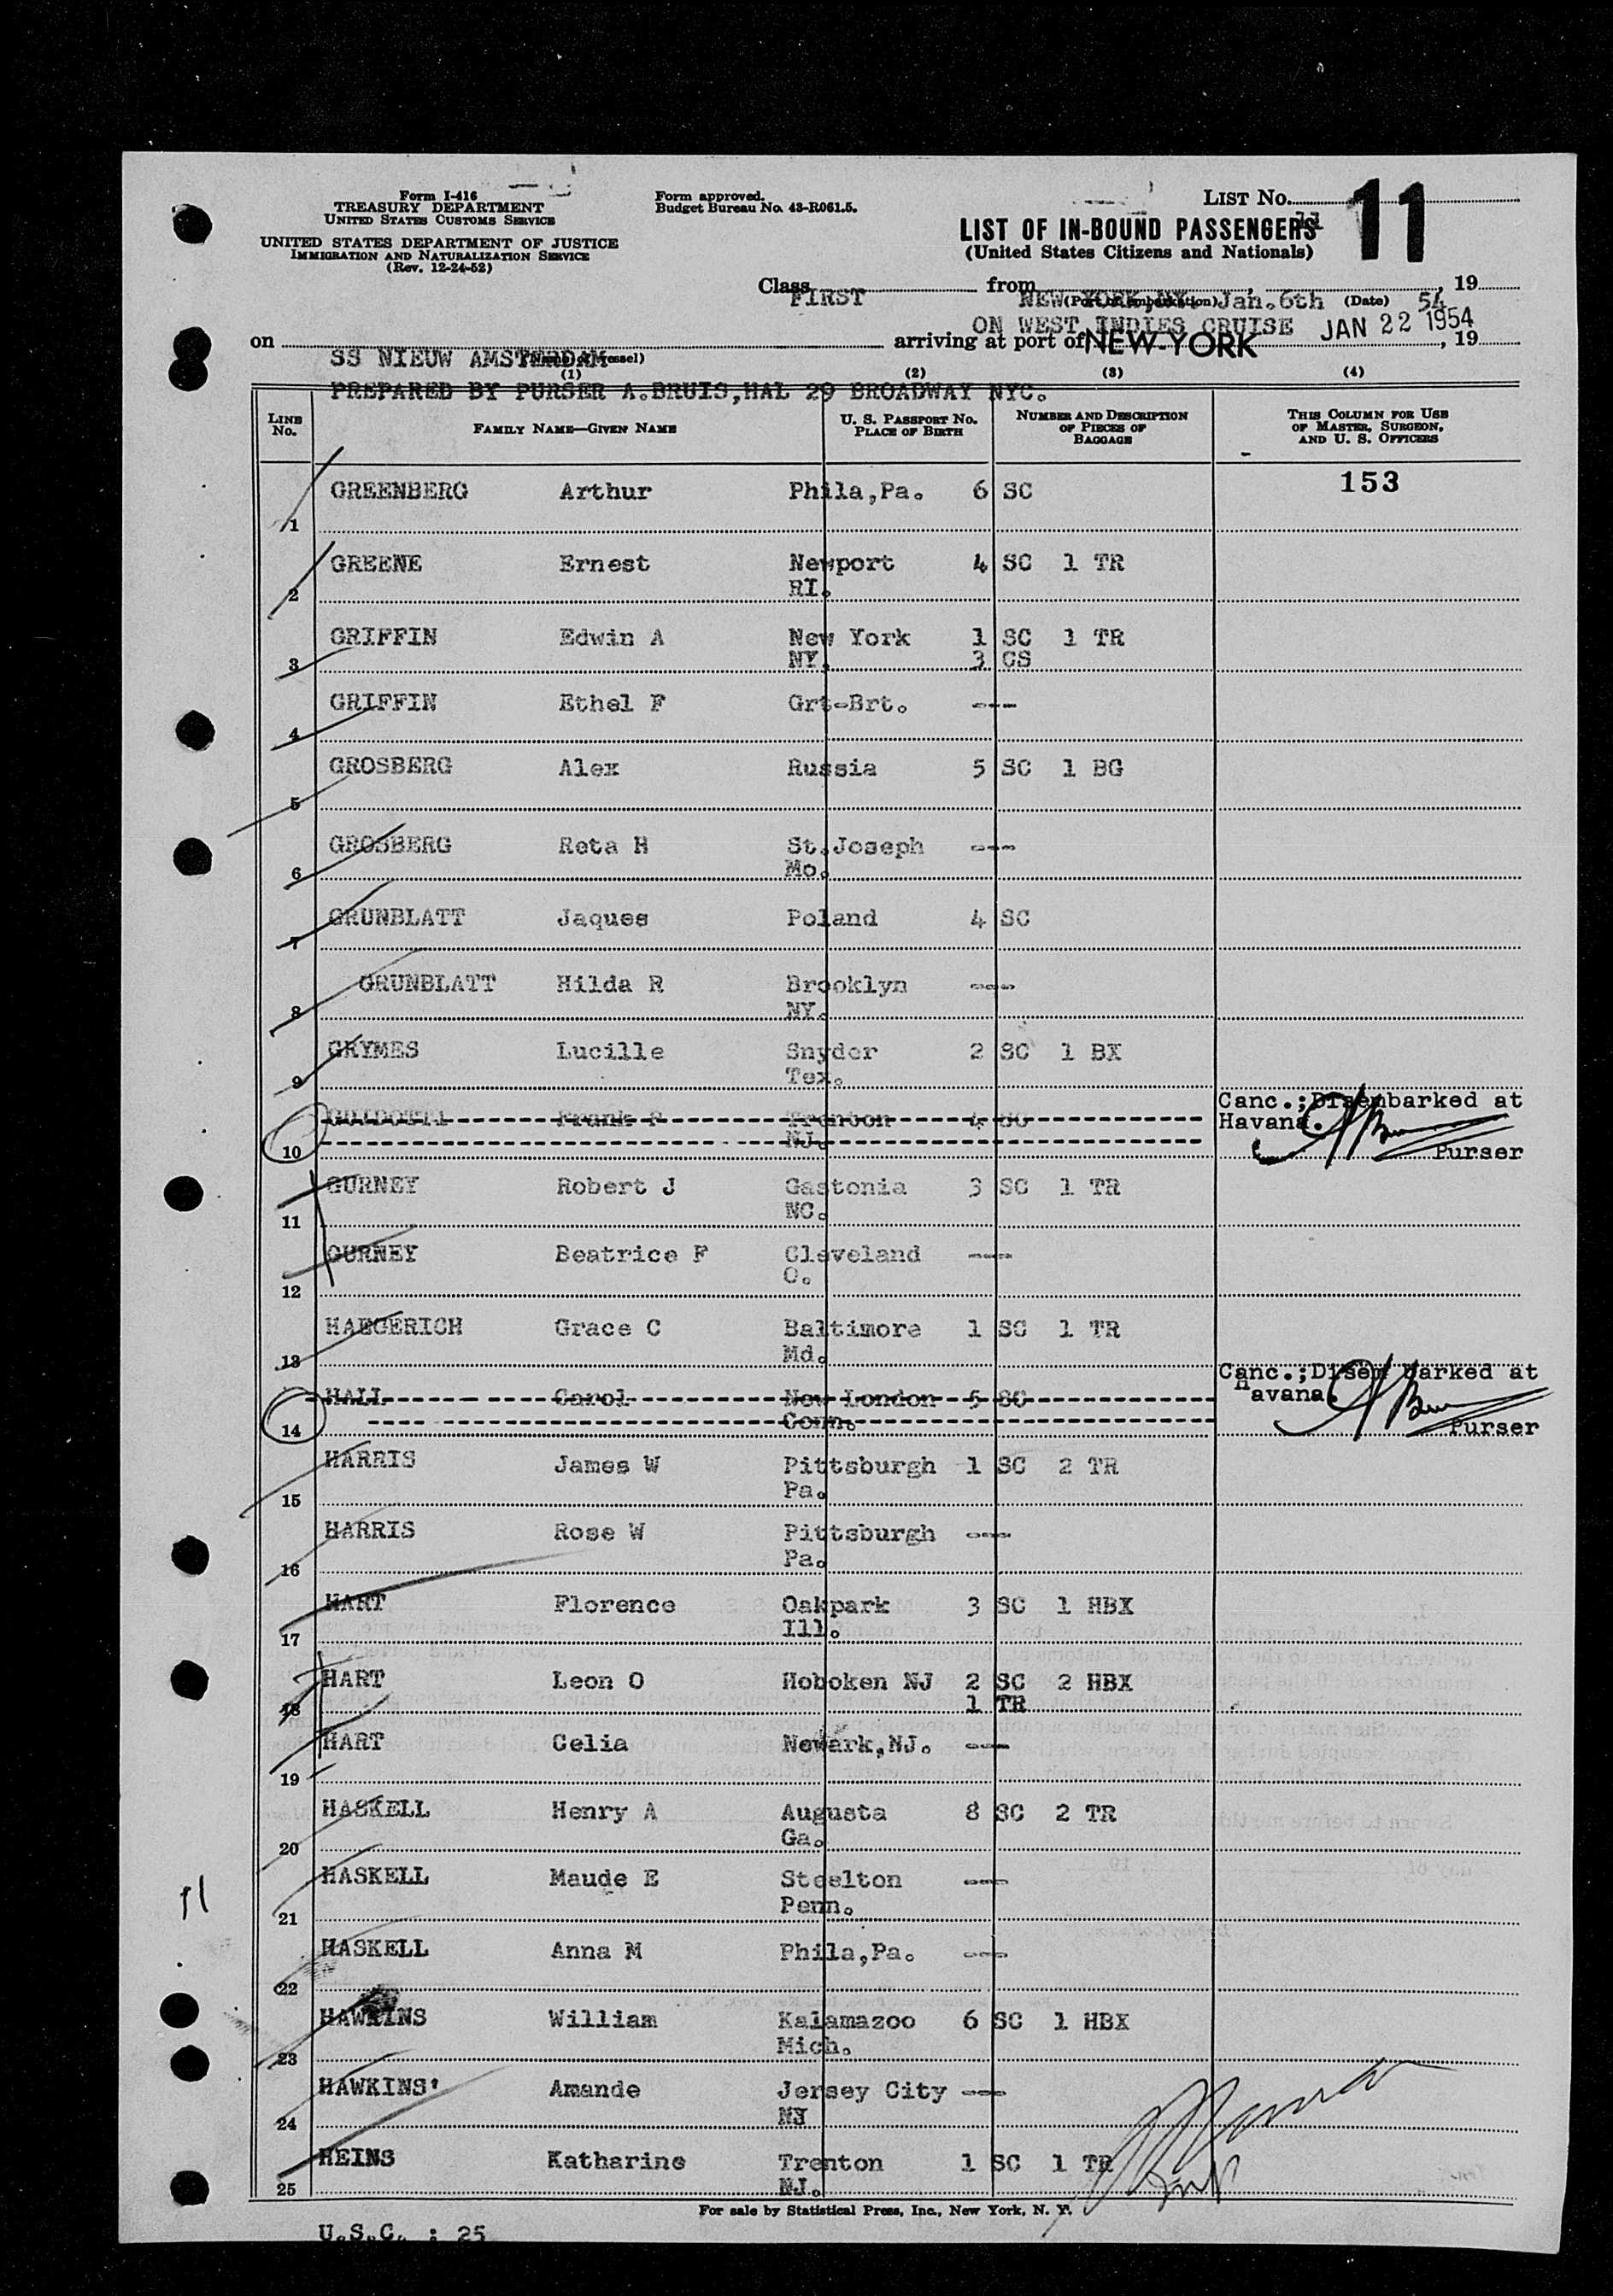 Form I-416
TREASURY DEPARTMENT
UNITED STATES CUSTOMS SERVICE
UNITED STATES DEPARTMENT OF JUSTICE
IMMIGRATION AND NATURALIZATION SERVICE
(Rev. 12-24-52)
Form approved.
Budget Bureau No. 43-R061.5.
LIST No. 11
LIST OF IN-BOUND PASSENGERS
(United States Citizens and Nationals)
11
Class FIRST from NEW YORK, NY., Jan.6th, 19 54
(Port of embarkation) (Date)
ON WEST INDIES CRUISE JAN 22 1954
on SS NIEUW AMSTERDAM arriving at port of NEW-YORK, 19
(Name of vessel)
(1) (2) (3) (4)
PREPARED BY PURSER A.BRUIS,HAL 29 BROADWAY NYC.
LINE No. FAMILY NAME—GIVEN NAME U. S. PASSPORT NO. PLACE OF BIRTH NUMBER AND DESCRIPTION OF PIECES OF BAGGAGE THIS COLUMN FOR USE OF MASTER, SURGEON, AND U. S. OFFICERS
153
1 GREENBERG Arthur Phila,Pa. 6 SC
2 GREENE Ernest Newport 4 SC 1 TR
RI.
3 GRIFFIN Edwin A New York 1 SC 1 TR
NY. 3 CS
4 GRIFFIN Ethel F Grt-Brt. ---
5 GROSBERG Alex Russia 5 SC 1 BG
6 GROSBERG Reta H St.Joseph ---
Mo.
7 GRUNBLATT Jaques Poland 4 SC
8 GRUNBLATT Hilda R Brooklyn ---
NY.
9 GRYMES Lucille Snyder 2 SC 1 BX
Tex.
10 GUIDOTTI Frank P Trenton 4 SC Canc.;Disembarked at
NJ. Havana.
Purser
11 GURNEY Robert J Gastonia 3 SC 1 TR
NC.
12 GURNEY Beatrice F Cleveland ---
O.
13 HAEGERICH Grace C Baltimore 1 SC 1 TR
Md.
14 HALL Carol New London 5 SC Canc.;Disem barked at
Conn. Havana
Purser
15 HARRIS James W Pittsburgh 1 SC 2 TR
Pa.
16 HARRIS Rose W Pittsburgh ---
Pa.
17 HART Florence Oakpark 3 SC 1 HBX
Ill.
18 HART Leon O Hoboken NJ 2 SC 2 HBX
1 TR
19 HART Celia Newark,NJ. ---
20 HASKELL Henry A Augusta 8 SC 2 TR
Ga.
21 HASKELL Maude E Steelton ---
Penn.
22 HASKELL Anna M Phila,Pa. ---
23 HAWKINS William Kalamazoo 6 SC 1 HBX
Mich.
24 HAWKINS' Amande Jersey City ---
NJ
25 HEINS Katharine Trenton 1 SC 1 TR
NJ.
For sale by Statistical Press, Inc., New York, N. Y.
U.S.C. : 25
11